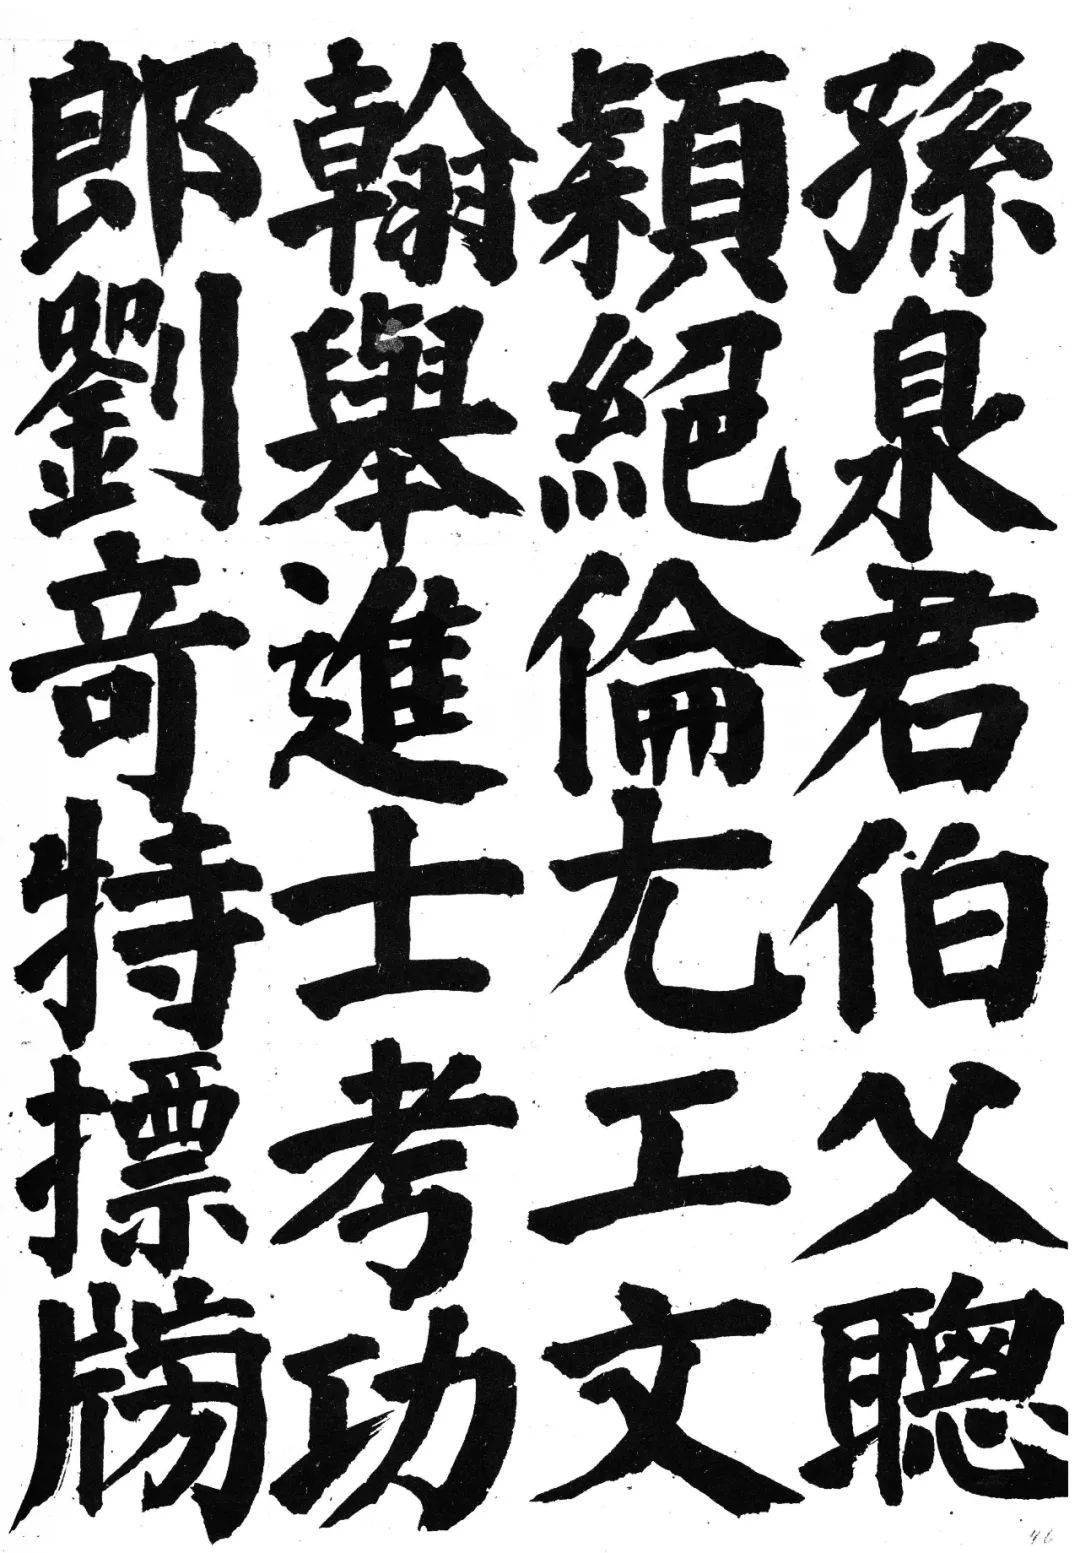 孫泉君伯父聰
穎絕倫尤工文
翰舉進士考功
郎劉竒特摽牓
46